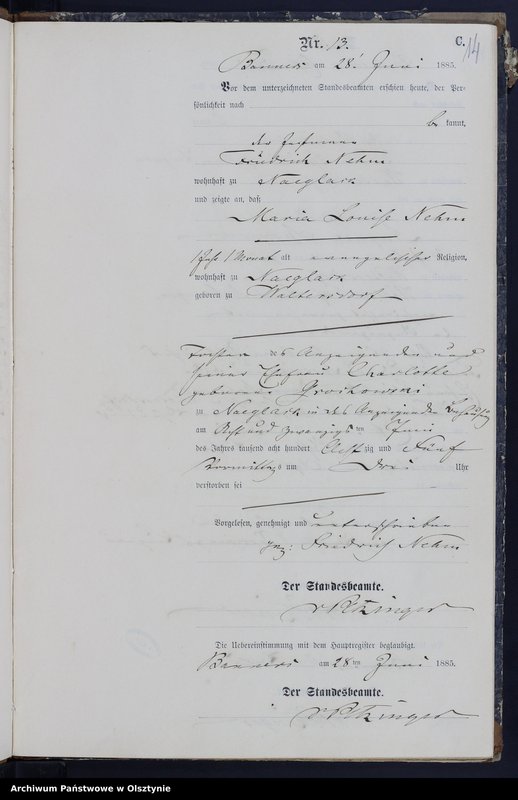 C. 14
Nr. 13.
am 28t Juni 1885.
Vor dem unterzeichneten Standesbeamten erschien heute, der Per-
sönlichkeit nach
be kannt,
der
Friedrich Nehm
wohnhaft zu Naeglack
und zeigte an, daß
Maria Louise Nehm
1 Jahr 1 Monat alt evangelischer Religion,
wohnhaft zu Naeglack
geboren zu Waltersdorf
Tochter des Anzeigenden und
seiner Ehefrau Charlotte
geborene
zu Naeglack in des Anzeigenden Behausung
am Acht und zwanzigsten Juni
des Jahres tausend acht hundert Acht zig und Fünf
Vormittags um Drei Uhr
verstorben sei
Vorgelesen, genehmigt und unterschrieben
gez: Friedrich Nehm
Der Standesbeamte.
Die Uebereinstimmung mit dem Hauptregister beglaubigt.
am 28ten Juni 1885.
Der Standesbeamte.
Archiwum Państwowe w Olsztynie